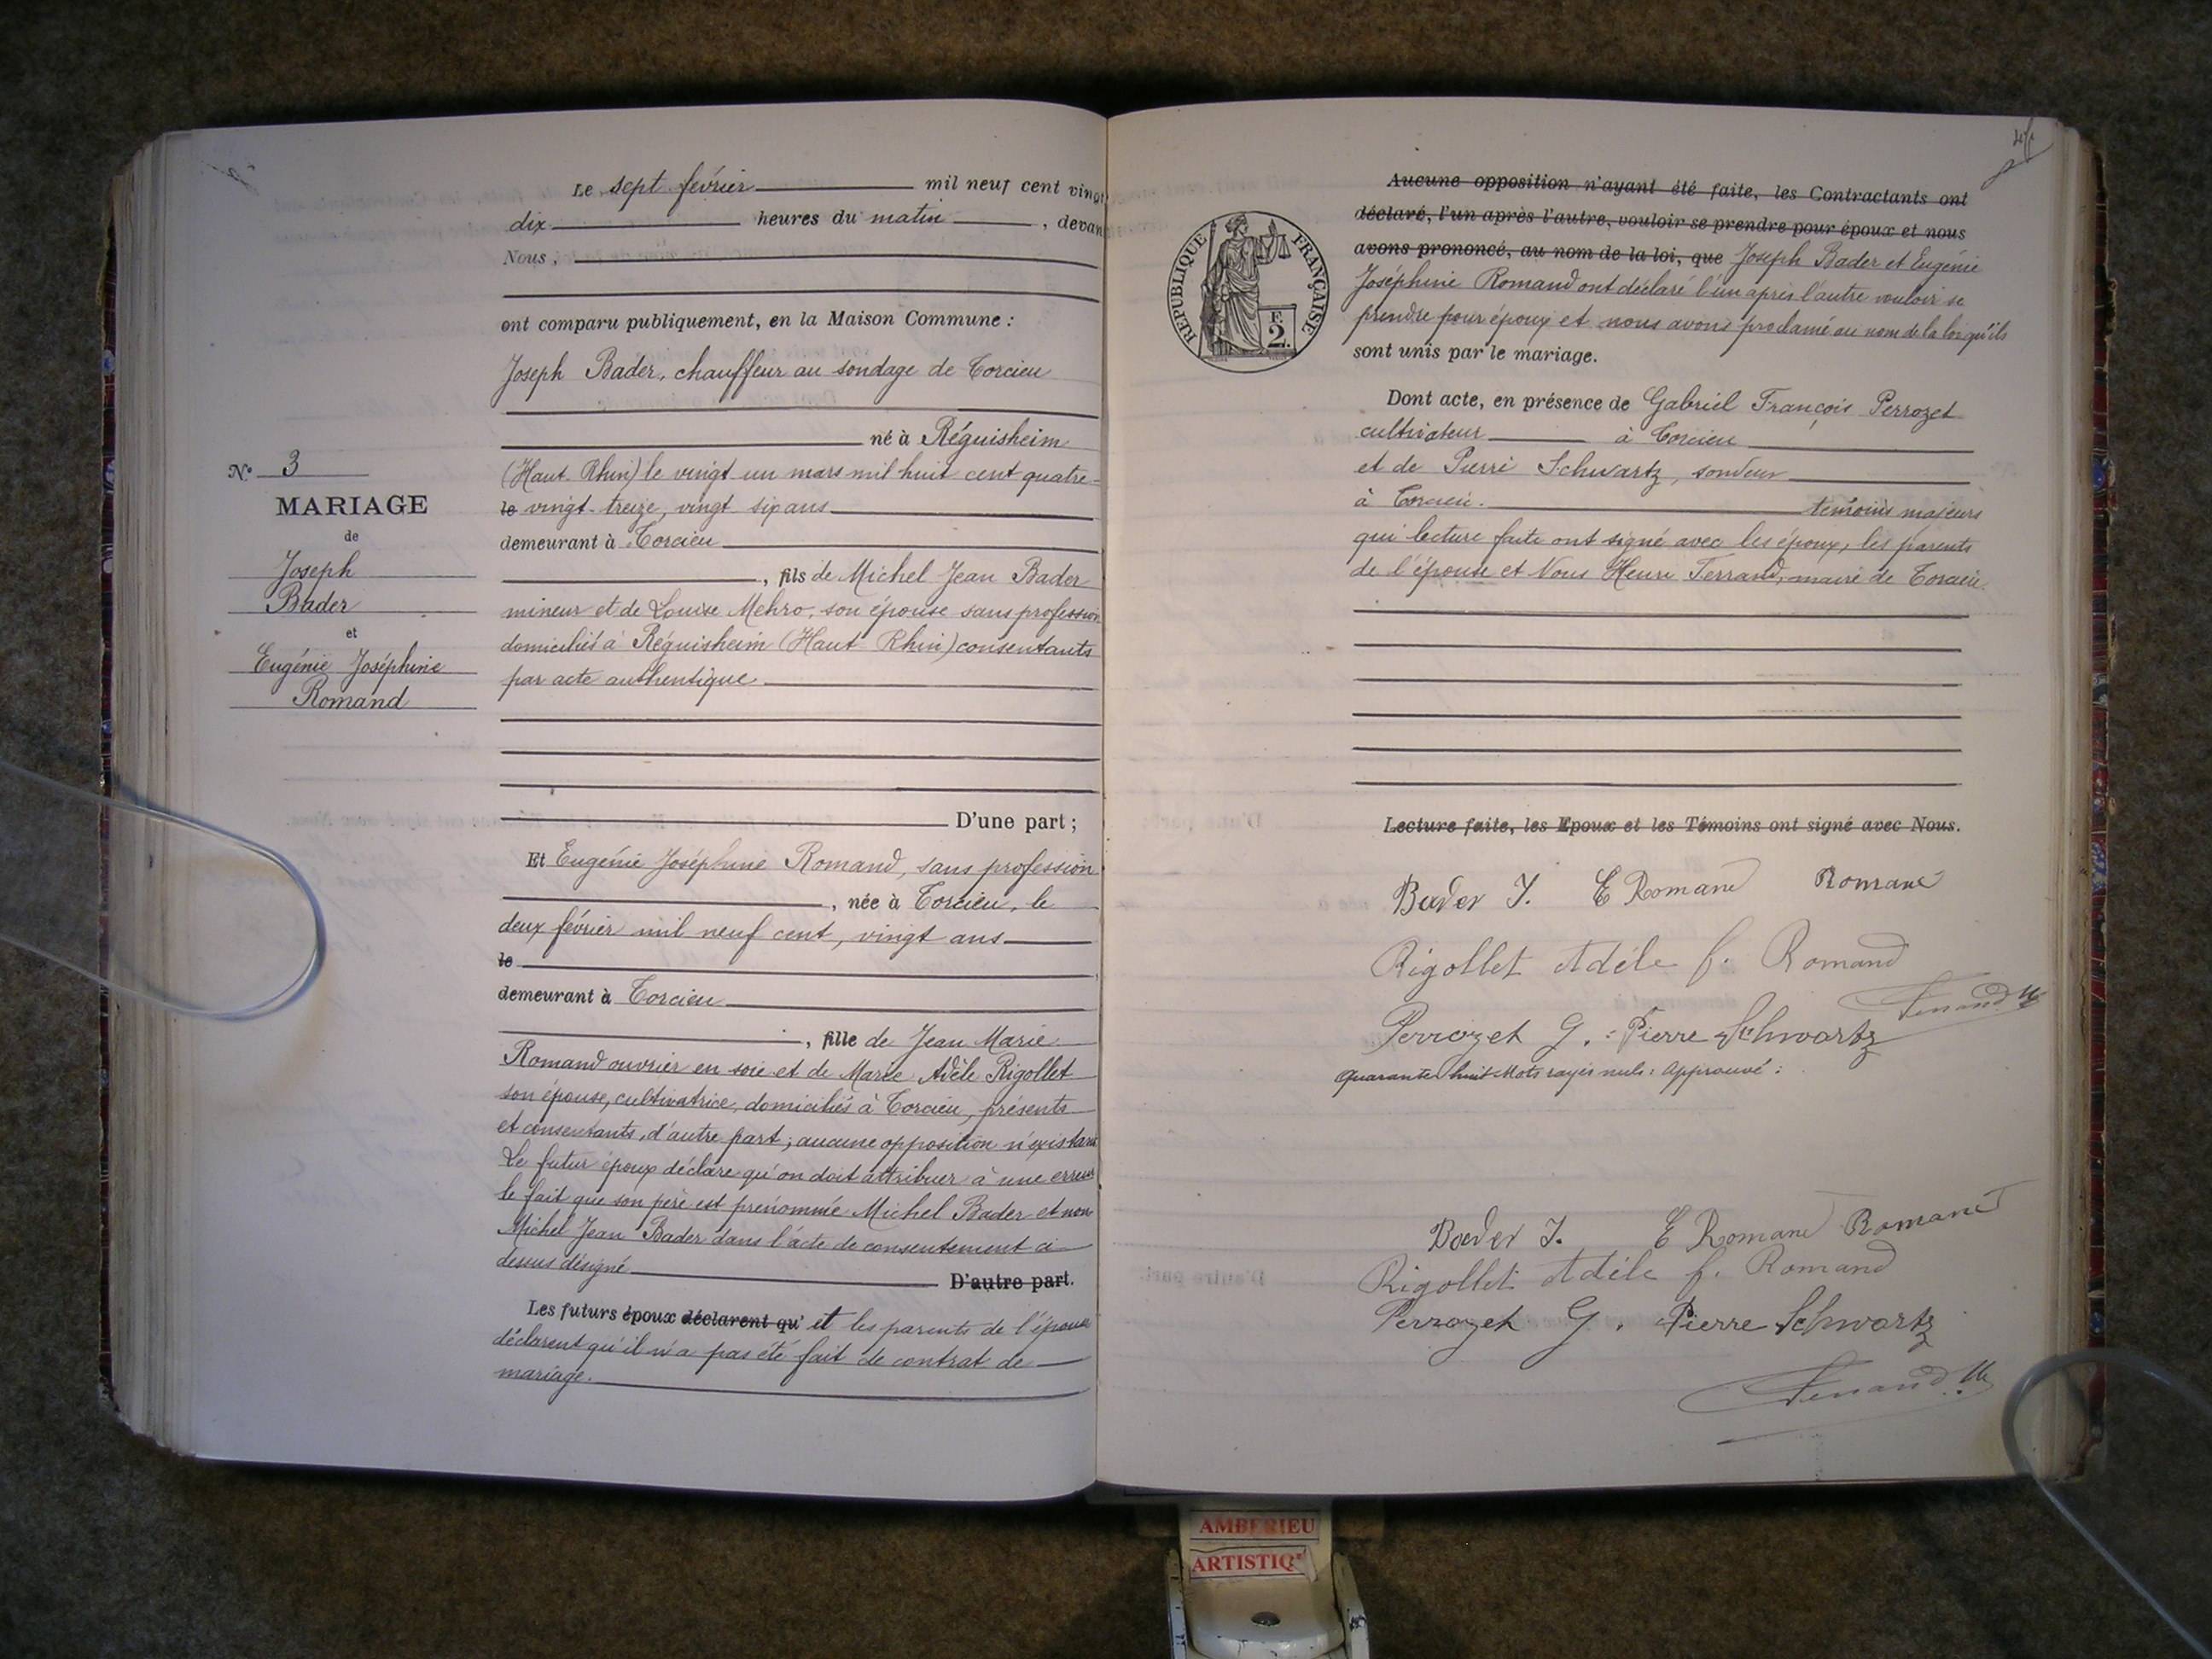 Le sept février mil neuf cent vingt
dix heures du matin , devant
Nous ,
ont comparu publiquement, en la Maison Commune :
Joseph Bader, chauffeur au sondage de Torcieu
né à Réguisheim
(Haut-Rhin) le vingt-un mars mil huit cent quatre-
le vingt-treize, vingt six ans
demeurant à Torcieu
, fils de Michel Jean Bader
mineur et de Louise Mehro, son épouse sans profession
domiciliés à Réguisheim (Haut-Rhin) consentants
par acte authentique
D'une part ;
N° 3
MARIAGE
de
Joseph
Bader
et
Eugénie Joséphine
Romand
Et Eugénie Joséphine Romand, sans profession
, née à Torcieu, le
deux février mil neuf cent, vingt ans
le
demeurant à Torcieu
, fille de Jean Marie
Romand ouvrier en soie et de Marie Adèle Rigollet
son épouse, cultivatrice, domiciliés à Torcieu, présents
et consentants, d'autre part ; aucune opposition n'existant
Le futur époux déclare qu'on doit attribuer à une erreur
le fait que son père est prénommé Michel Bader et non
Michel Jean Bader dans l'acte de consentement ci-
dessus désigné D'autre part.
Les futurs époux déclarent qu' et les parents de l'épouse
déclarent qu'il n'a pas été fait de contrat de
mariage.
Aucune opposition n'ayant été faite, les Contractants ont
déclaré, l'un après l'autre, vouloir se prendre pour époux et nous
avons prononcé, au nom de la loi, que Joseph Bader et Eugénie
Joséphine Romand ont déclaré l'un après l'autre vouloir se
prendre pour époux et nous avons proclamé au nom de la loi qu'ils
sont unis par le mariage.
RÉPUBLIQUE FRANÇAISE
F.
2.
Dont acte, en présence de Gabriel François Perrozet
cultivateur à Torcieu
et de Pierre Schwartz, sondeur
à Torcieu. témoins majeurs
qui lecture faite ont signé avec les époux, les parents
de l'épouse et Nous Henri Ferrand, maire de Torcieu.
Lecture faite, les Epoux et les Témoins ont signé avec Nous.
Bader J. E Romand Romand
Rigollet Adèle f. Romand
Ferrand H
Perrozet G. Pierre Schwartz
Quarante huit Mots rayés nuls : Approuvé :
Bader J. E Romand Romand
Rigollet Adèle f. Romand
Perrozet G. Pierre Schwartz
Ferrand H
AMBERIEU
ARTISTIQ